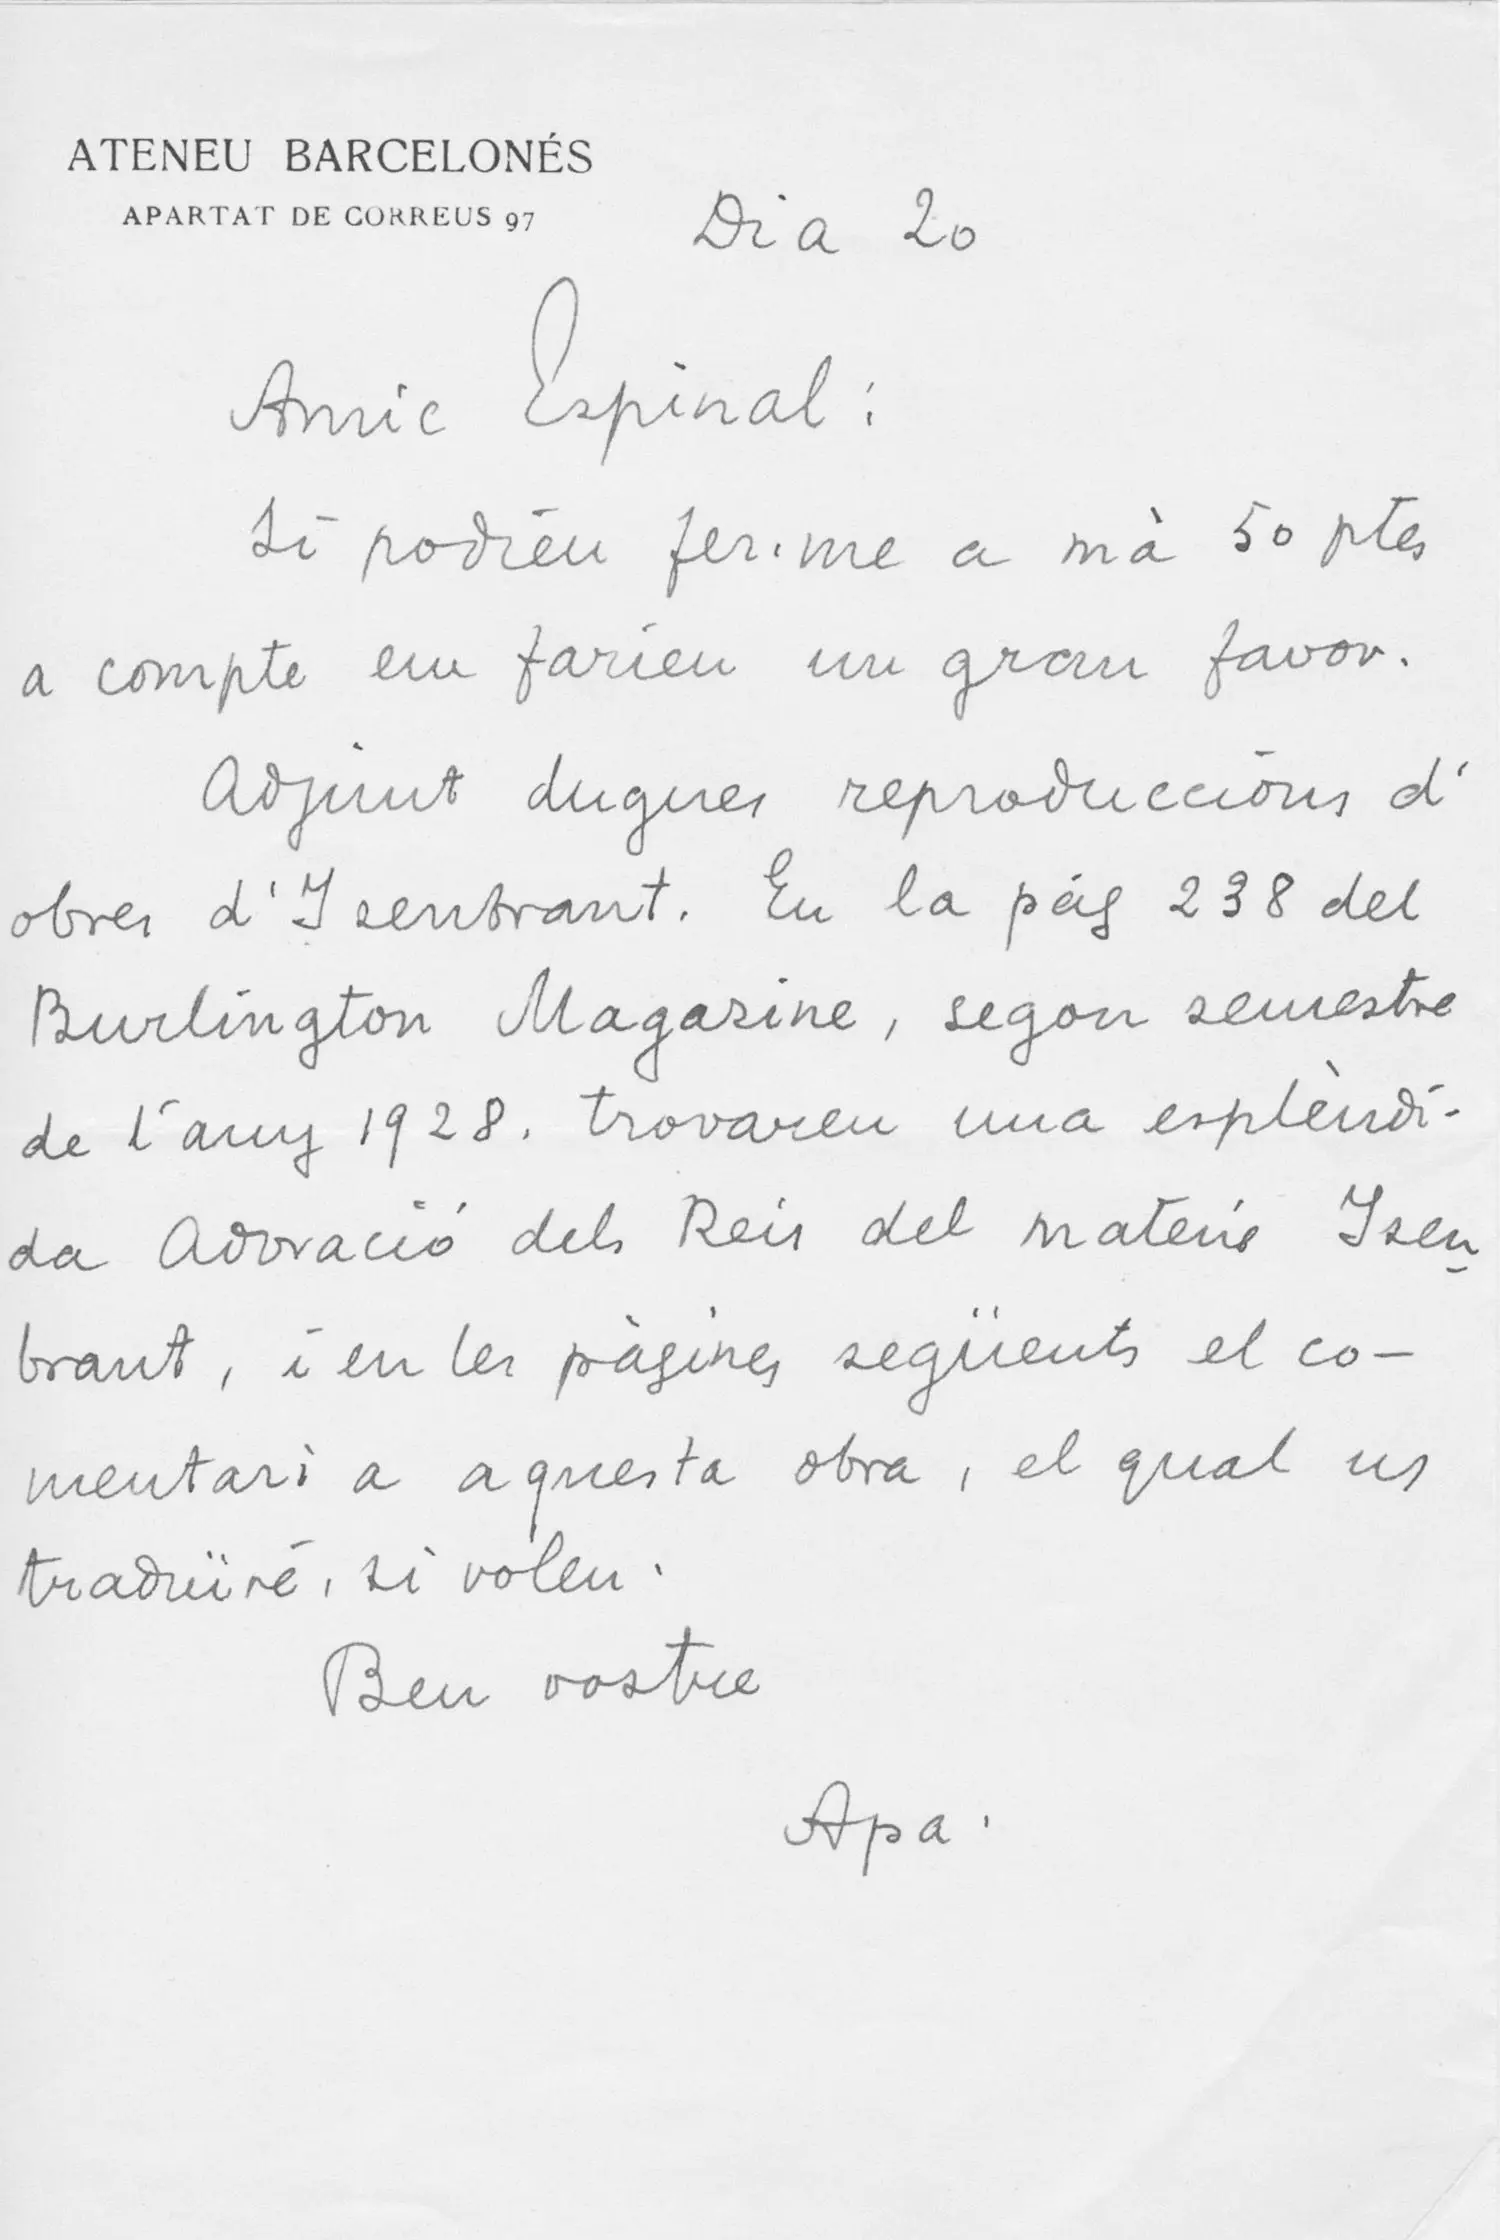 ATENEU BARCELONÉS
APARTAT DE CORREUS 97
Dia 20
Amic Espinal:
Si podieu fer-me a mà 50 ptes
a compte em farieu un gran favor.
Adjunt dugues reproduccions d'
obres d'Isenbrant. En la pág 238 del
Burlington Magazine, segon semestre
de l'any 1928, trovareu una esplèndi-
da Adoració dels Reis del mateis Isen
brant, i en les pàgines següents el co-
mentari a aquesta obra, el qual us
traduïré, si voleu.
Ben vostre
Apa.